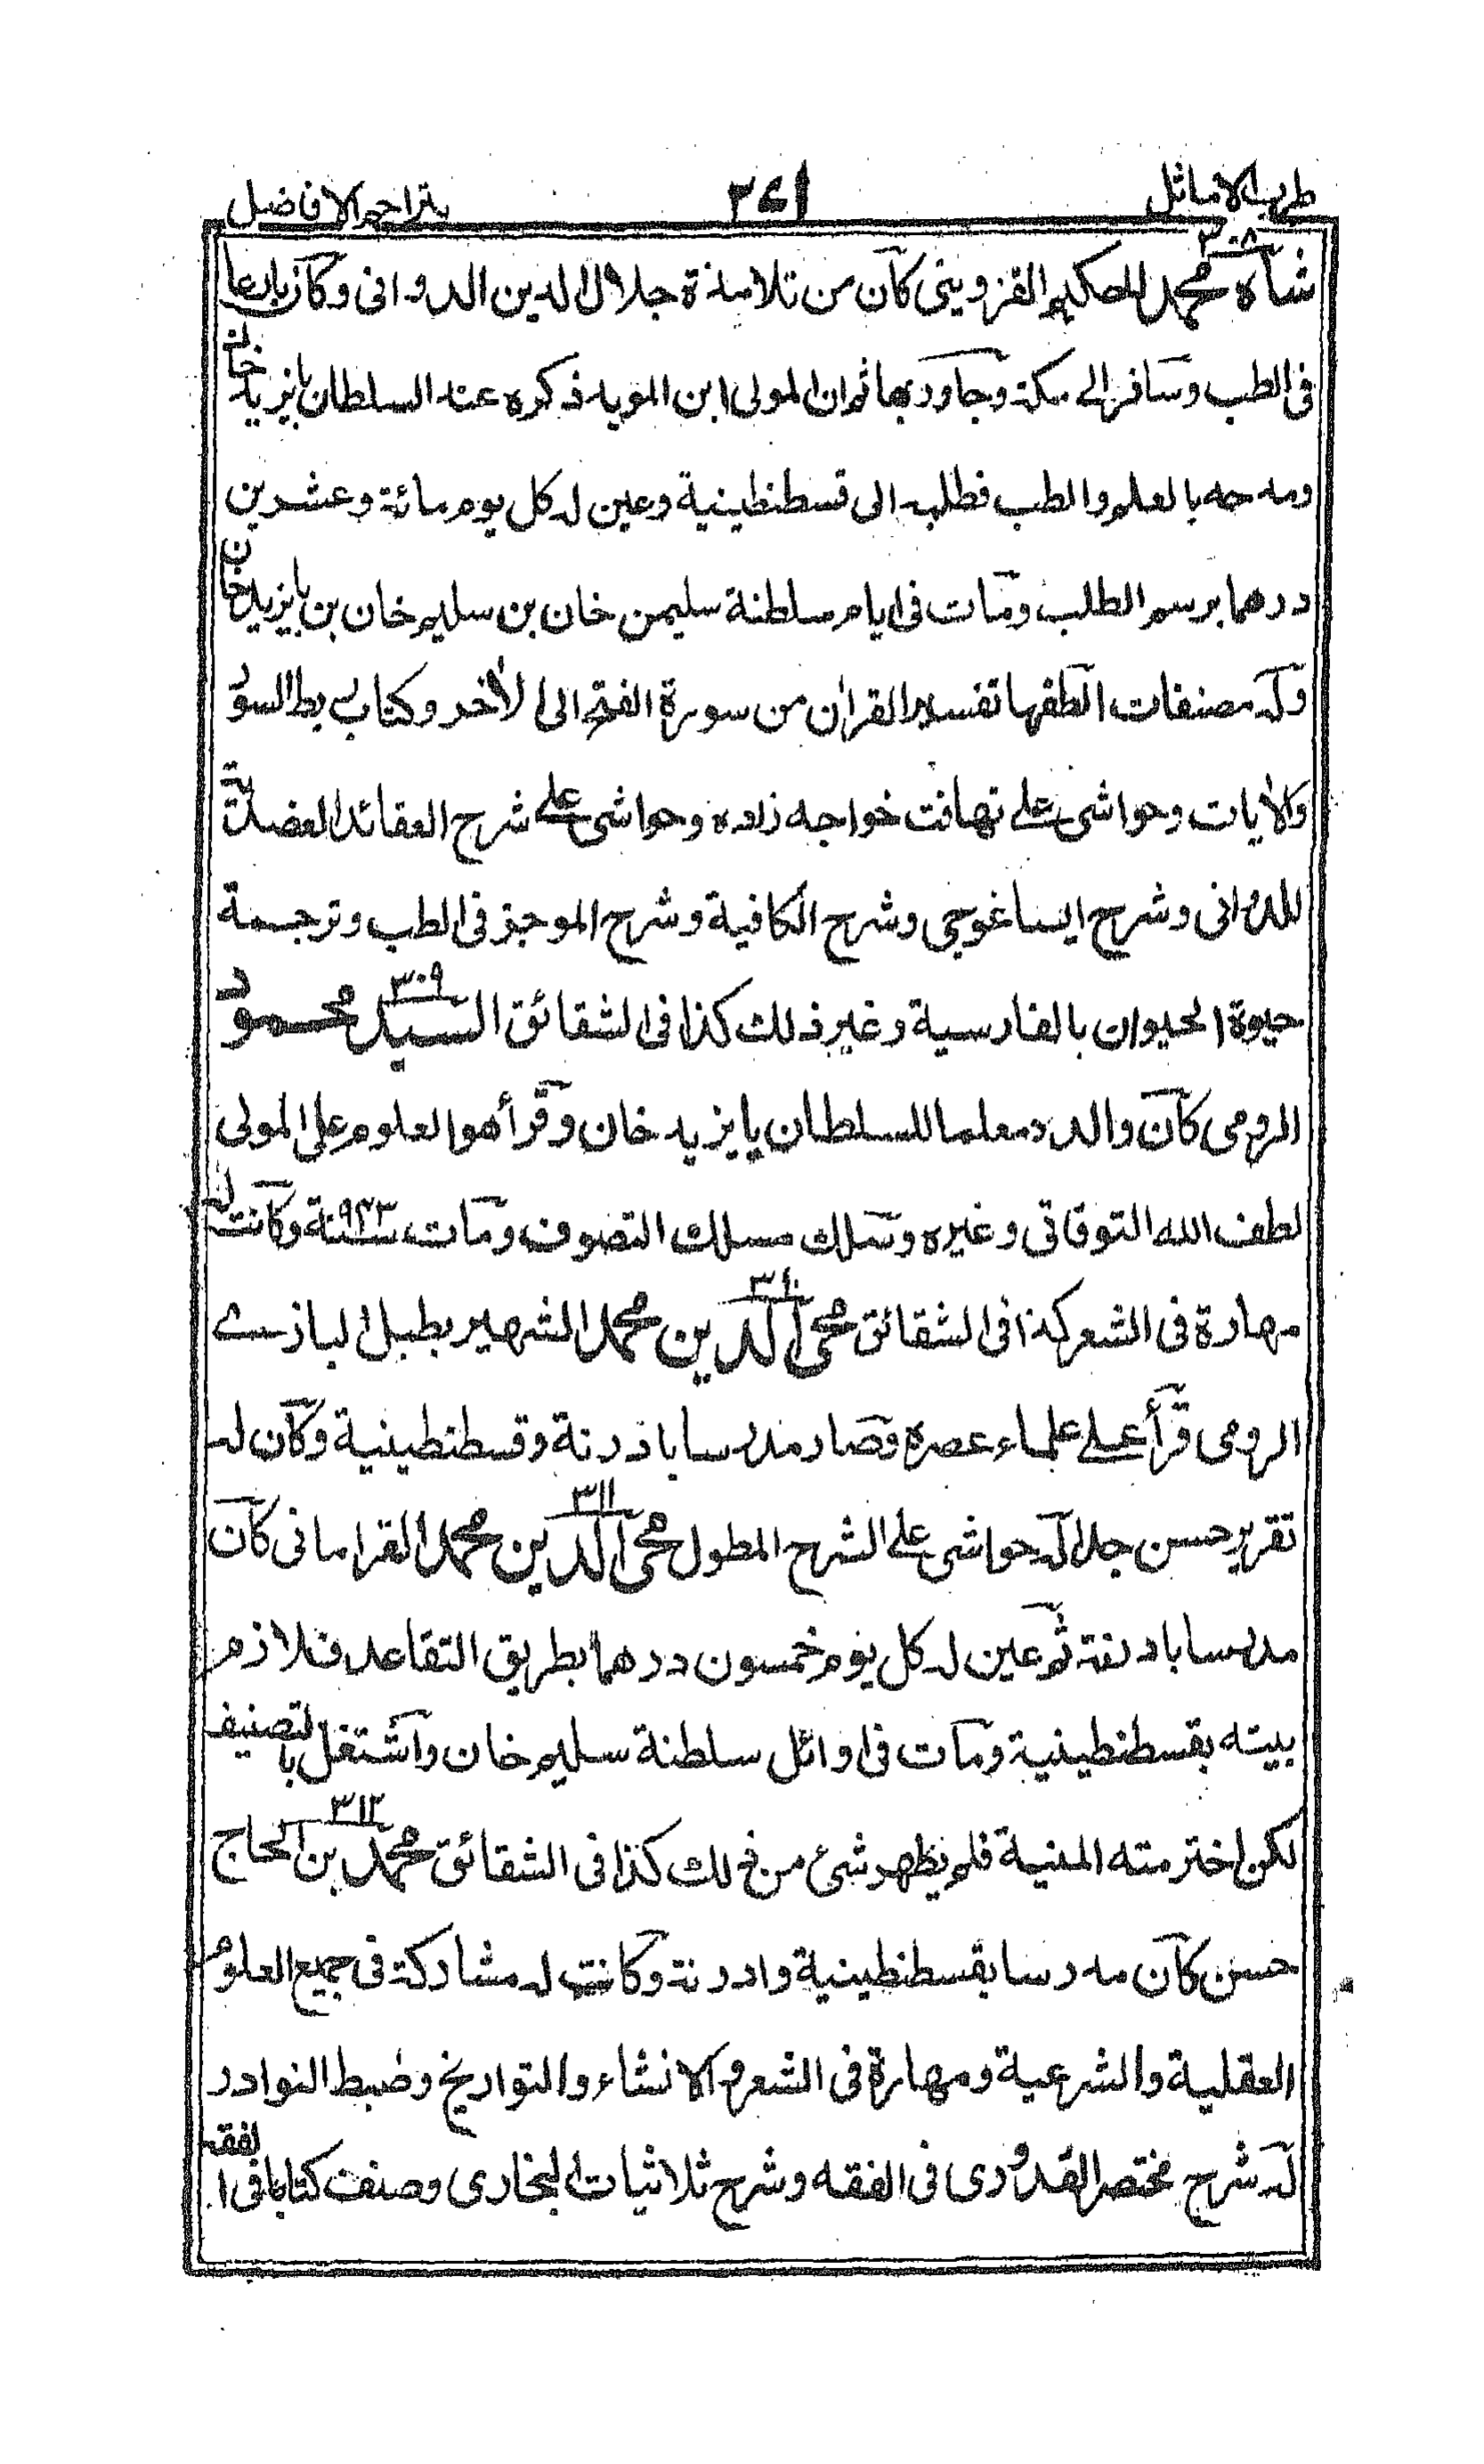 طرب الاماثل ٣٤١ بتراجم الافاضل
٣٠٨
شاه محمد الحكيم القزويني كان من تلامذة جلال الدين الدواني وكان بارعا
في الطب وسافر الى مكة وجاور بها ثم ان المولى ابن المويد ذكره عند السلطان بايزيد خان
ومدحه بالعلم والطب فطلبه الى قسطنطينية وعين له كل يوم مائة وعشرين
درهما برسم الطلب ومات في ايام سلطنة سليمن خان بن سليم خان بن بايزيد خان
وله مصنفات الطفها تفسير القرأن من سورة الفتح الى الأخر وكتاب ربط السور
والأيات وحواشي على تهافت خواجه زاده وحواشي على شرح العقائد العضدية
للدواني وشرح ايساغوجي وشرح الكافية وشرح الموجز في الطب وترجمة
حيوة الحيوان بالفارسية وغير ذلك كذا في الشقائق ٣٠٩ السيد محمود
الرومي كان والده معلما للسلطان بايزيد خان وقرأ هو العلوم على المولى
لطف الله التوقاتي وغيره وسلك مسلك التصوف ومات سنة ٩٤٣ وكانت له
مهارة في الشعر كذا في الشقائق ٣١٠ محي الدين محمد الشهير بطبل البازے
الرومي قرأ على علماء عصره وصار مدرسا بادرنة وقسطنطينية وكان له
تقرير حسن جدا له حواشي على الشرح المطول ٣١١ محي الدين محمد القراماني كان
مدرسا بادرنة ثم عين له كل يوم خمسون درهما بطريق التقاعد فلازم
بيته بقسطنطينية ومات في اوائل سلطنة سليم خان واشتغل بالتصنيف
لكن اخترمته المنية فلم يظهر شئ من ذلك كذا في الشقائق ٣١٢ محمد بن الحاج
حسن كان مدرسا بقسطنطينية وادرنة وكانت له مشاركة في جميع العلوم
العقلية والشرعية ومهارة في الشعر والانشاء والتواريخ وضبط النوادر
له شرح مختصر القدوري في الفقه وشرح ثلاثيات البخاري وصنف كتابا في الفقه